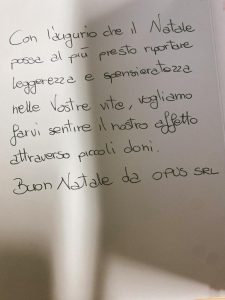 Con l'augurio che il Natale
possa al più presto riportare
leggerezza e spensieratezza
nelle Vostre vite, vogliamo
farvi sentire il nostro affetto
attraverso piccoli doni.
Buon Natale da OPUS SRL